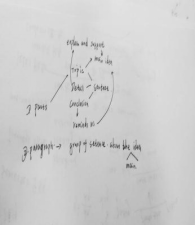 explain and support
main idea
topic
Sentence
conclusion
3 parts
reminds us
paragraph → group of sentence about the idea
main